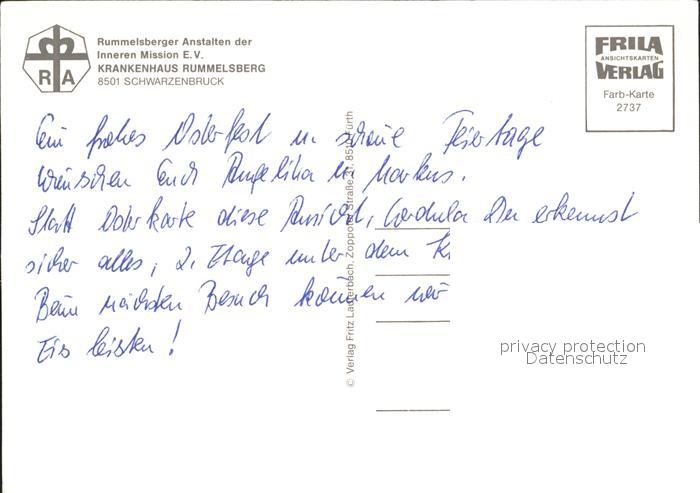 Rummelsberger Anstalten der
Inneren Mission E.V.
KRANKENHAUS RUMMELSBERG
8501 SCHWARZENBRUCK
R A
FRILA
ANSICHTSKARTEN
VERLAG
Farb-Karte
2737
Ein frohes Osterfest u. schöne Feiertage
wünschen Euch Angelika u. Markus.
Statt Osterkarte diese Ansicht, Cordula Du erkennst
sicher alles, 2. Etage unter dem
Beim nächsten Besuch können wir
Eis leisten!
© Verlag Fritz Lauterbach, Zoppoter Straße 8510 Fürth
privacy protection
Datenschutz